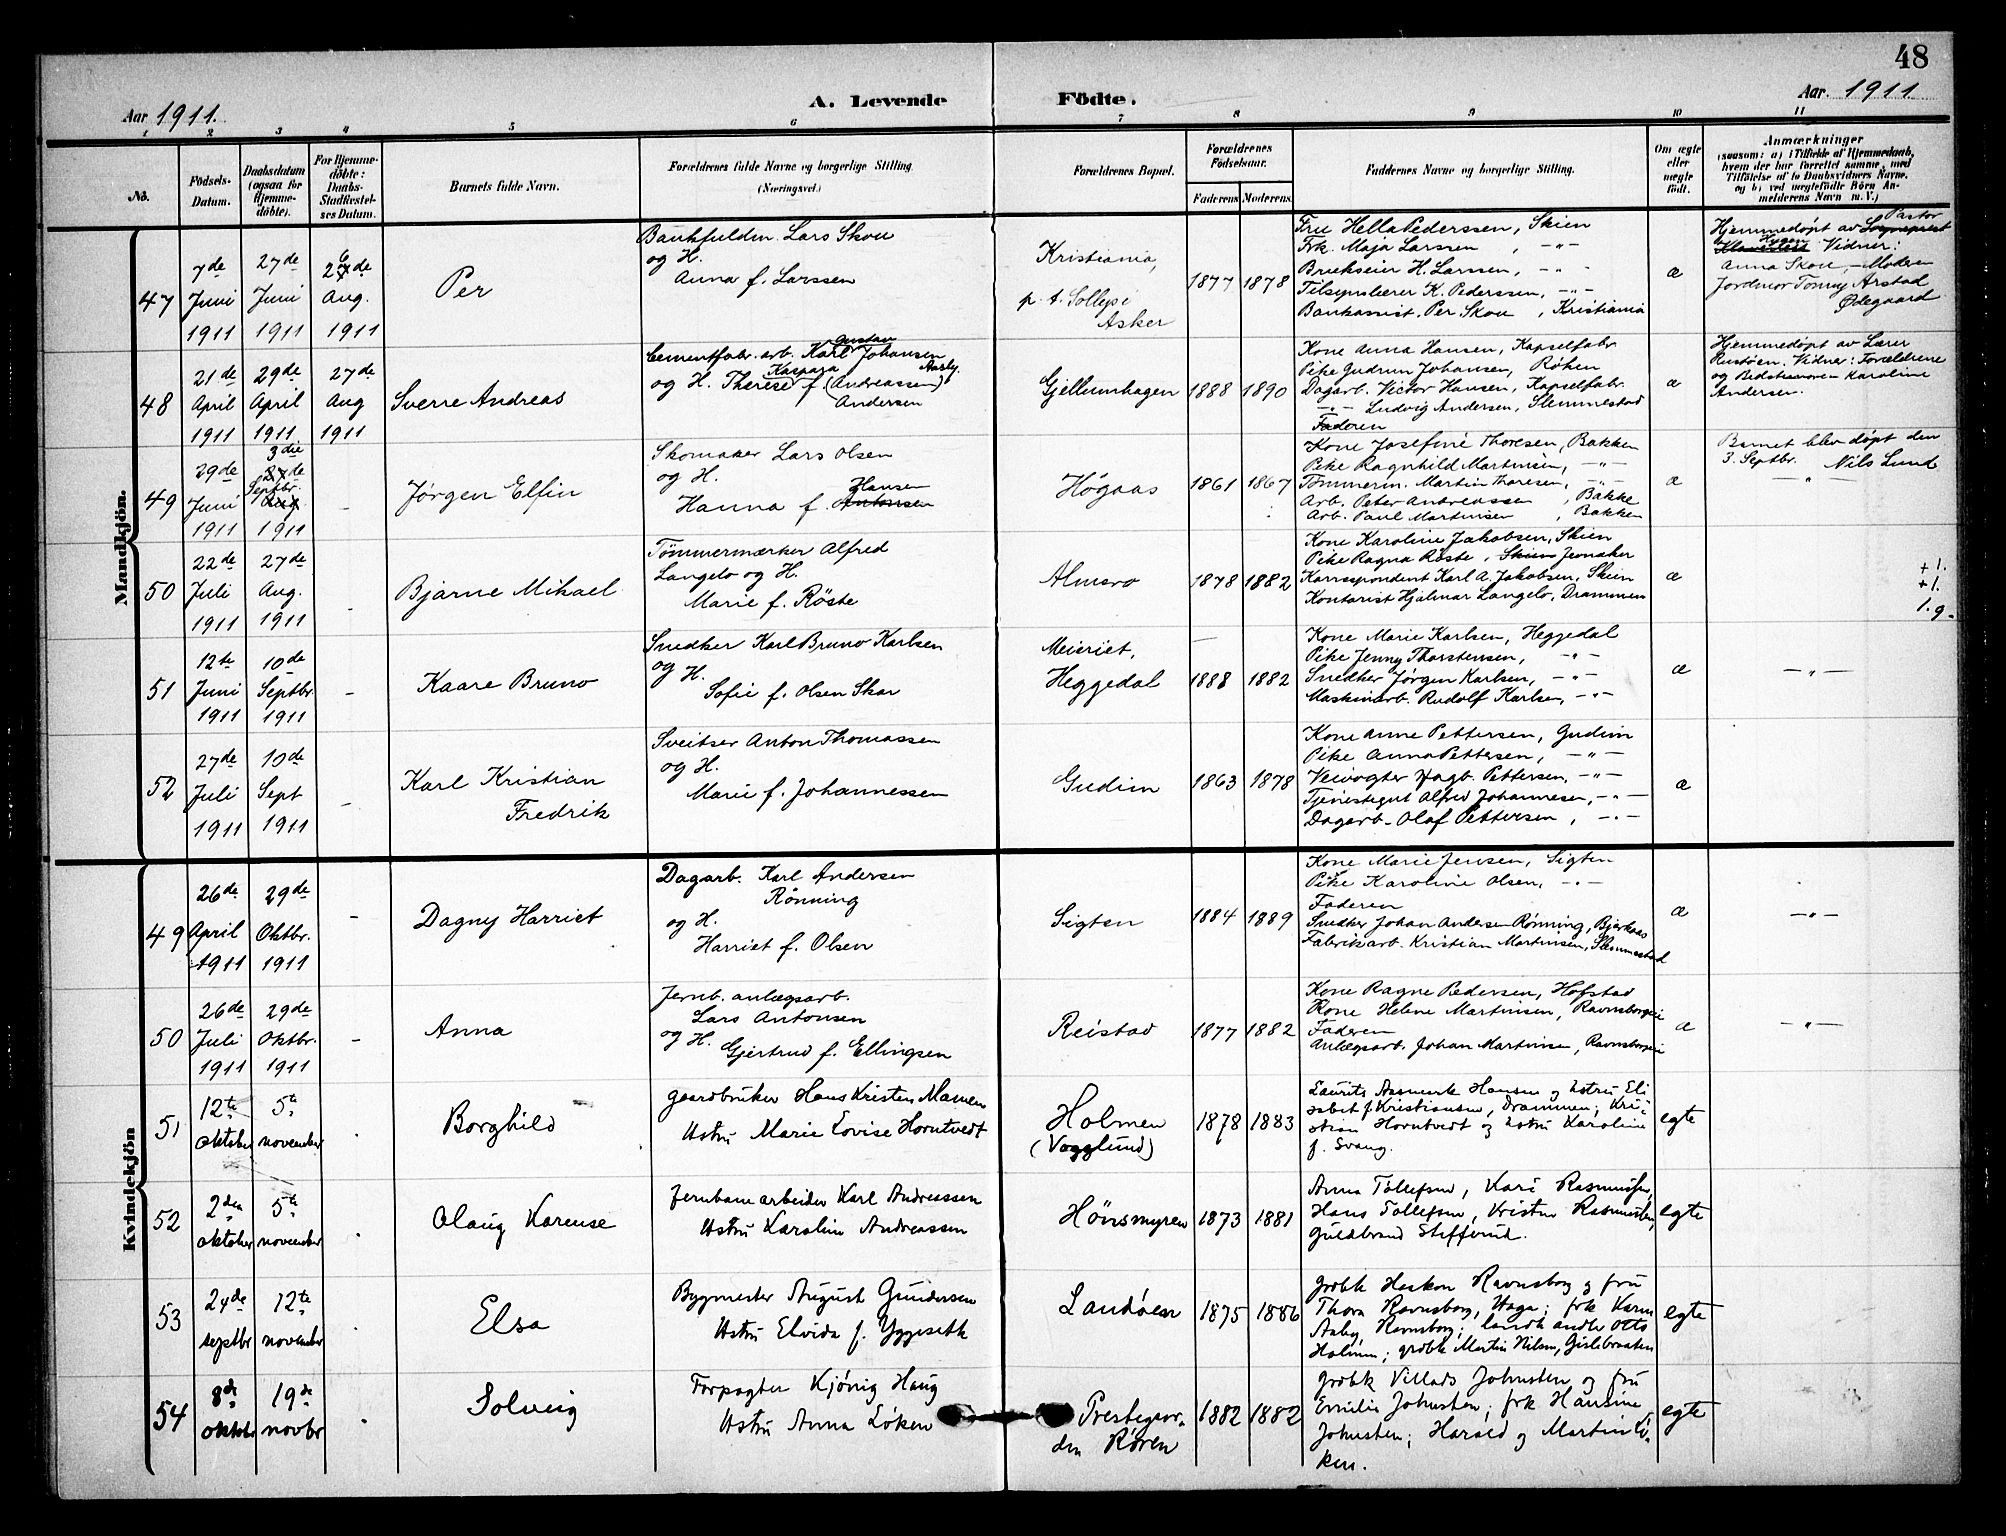 48
Aar 1911.
A. Levende Födte.
Aar. 1911
1 2 3 4 5 6 7 8 9 10 11
No.
Födsels-
Datum.
Daabsdatum
(ogsaa for
Hjemme-
döbte).
For Hjemme-
döbte:
Daabs-
Stadfæstel-
ses Datum.
Barnets fulde Navn.
Forældrenes fulde Navne og borgerlige Stilling.
(Næringsvei.)
Forældrenes Bopæl.
Forældrenes
Födselsaar.
Faderens
Moderens
Faddernes Navne og borgerlige Stilling.
Om ægte
eller
uægte
födt.
Anmærkninger
(saasom: a) i Tilfælde af Hjemmedaab,
hvem der har forrettet samme, med
Tilföielse af to Daabsvidners Navne,
og b) ved uægtefödte Börn An-
melderens Navn m. V.)
Mandkjön.
47
7de
Juni
1911
27de
Juni
1911
26de
Aug.
1911
Per
Bankfuldm. Lars Skou
og H.
Anna f. Larssen
Kristiania,
p. t. Solløsi
Asker
1877
1878
Fru Hella Pederssen, Skien
Frk. Maja Larssen, -"-
Brukseier H. Larssen, -"-
Tilsynslærer K. Pederssen, -"-
Bankassist. Per Skou, Kristiania
æ
Hjemmedøpt av Sogneprest Pastor
Hygen Vidner:
Anna Skou, Moderen
Jordmor Tonny Arstad
Ødegaard
48
21de
April
1911
29de
April
1911
27de
Aug
1911
Sverre Andreas
Cementfabr. arb. Karl Gustav Johansen
og H. Therese Kaspara f. (Andreassen) Aasby.
Andersen
Gjellumhagen
1888
1890
Kone Anna Hansen, Kapselfabr.
Pike Gudrun Johansen, Røken
Dagarb. Victor Hansen, Kapselfabr.
-"- Ludvig Andersen, Slemmestad
Faderen
æ
Hjemmedøpt av Lærer
Rustøen. Vidner: Forældrene
og Bedstemoren Karoline
Andersen.
49
29de
Juni
1911
3die
27de
Septbr.
Aug
1911
-
Jørgen Elfin
Skomaker Lars Olsen
og H.
Hanna f. Antonsen Hansen
Høgaas
1861
1867
Kone Josefine Thoresen, Bakken
Pike Ragnhild Martinsen, -"-
Tømmerm. Martin Thoresen, -"-
Arb. Peter Andreassen, Bakke
Arb. Paul Martinsen, Bakken
æ
Barnet blev døpt den
3. Septbr. Nils Lund
-"-
50
22de
Juli
1911
27de
Aug.
1911
-
Bjarne Mikael
Tømmermærker Alfred
Langelo og H.
Marie f. Røste
Almsro
1878
1882
Kone Karoline Jakobsen, Skien
Pike Ragna Røste, Skien Jevnaker
Korrespondent Karl A. Jakobsen, Skien
Kontorist Hjalmar Langelo, Drammen
æ
+1.
+1.
1.g.
51
12te
Juni
1911
10de
Septbr.
1911
-
Kaare Bruno
Snedker Karl Bruno Karlsen
og H.
Sofie f. Olsen Skar
Meieriet,
Heggedal
1888
1882
Kone Marie Karlsen, Heggedal
Pike Jenny Thorstensen, -"-
Snedker Jørgen Karlsen, -"-
Maskinarb. Rudolf Karlsen, -"-
æ
-"-
52
27de
Juli
1911
10de
Sept
1911
-
Karl Kristian
Fredrik
Sveitser Anton Thomassen
og H.
Marie f. Johannessen
Gudim
1863
1878
Kone Anne Pettersen, Gudim
Pike Anna Pettersen, -"-
Veivogter Hagb. Pettersen, -"-
Tjenestegut Alfred Johannesen, -"-
Dagarb. Olaf Pettersen, -"-
æ
Kvindekjön
49
26de
April
1911
29de
Oktbr.
1911
-
Dagny Harriet
Dagarb. Karl Andersen
Rønning
og H.
Harriet f. Olsen
Sigten
1884
1889
Kone Marie Jensen, Sigten
Pike Karoline Olsen, -"-
Faderen
Snedker Johan Andersen Rønning, Bjerkaas
Fabrikarb. Kristian Martinsen, Slemmestad
æ
-"-
50
26de
Juli
1911
29de
Oktbr.
1911
-
Anna
Jernb. anlægsarb.
Lars Antonsen
og H.
Gjertrud f. Ellingsen
Reistad
1877
1882
Kone Ragne Pedersen, Hofstad
Kone Helene Martinsen, Ravnsborgeie
Faderen
Anlægsarb. Johan Martinsen, Ravnsborgeie
æ
-"-
51
12te
oktober
5te
november
Borghild
gaardbruker Hans Kristen Mamen
Hstru Marie Lovise Horntvedt
Holmen
(Vogglund)
1878
1883
Laurits Asmerk Hansen og hstru Eli
sabet f. Kristiansen, Drammen; Kri-
stian Horntvedt og hstru Karoline
f. Svang.
egte
52
2den
oktober
5te
november
Olaug Karense
Jernbanearbeider Karl Andreassen
Hstru Karoline Andreassen
Hönsmyren
1873
1881
Anna Tollefsen, Kari Rasmussen,
Hans Tollefsen, Kristen Rasmussen,
Guldbrand Steffend.
egte
53
24de
septbr
12te
november
Elsa
Bygmester August Gundersen
Hstru Elvida f. Yggeseth
Landöen
1875
1886
grdbk Haakon Ravnsborg og fru
Thora Ravnsborg, Haga; frk Karen
Aaby, Ravnsborg; landhandler Otto
Holmen; grdbk Martin Nilsen, Gislebraaten
egte
54
8de
oktober
19de
novbr
Solveig
Forpagter Kjönig Haug
Hstru Anna Löken
Prestegaar-
den Røren
1882
1882
grdbk Villads Johnsten og fru
Emilie Johnsten; frk Hansine
Johnsten; Harald og Martin Lö-
ken.
egte